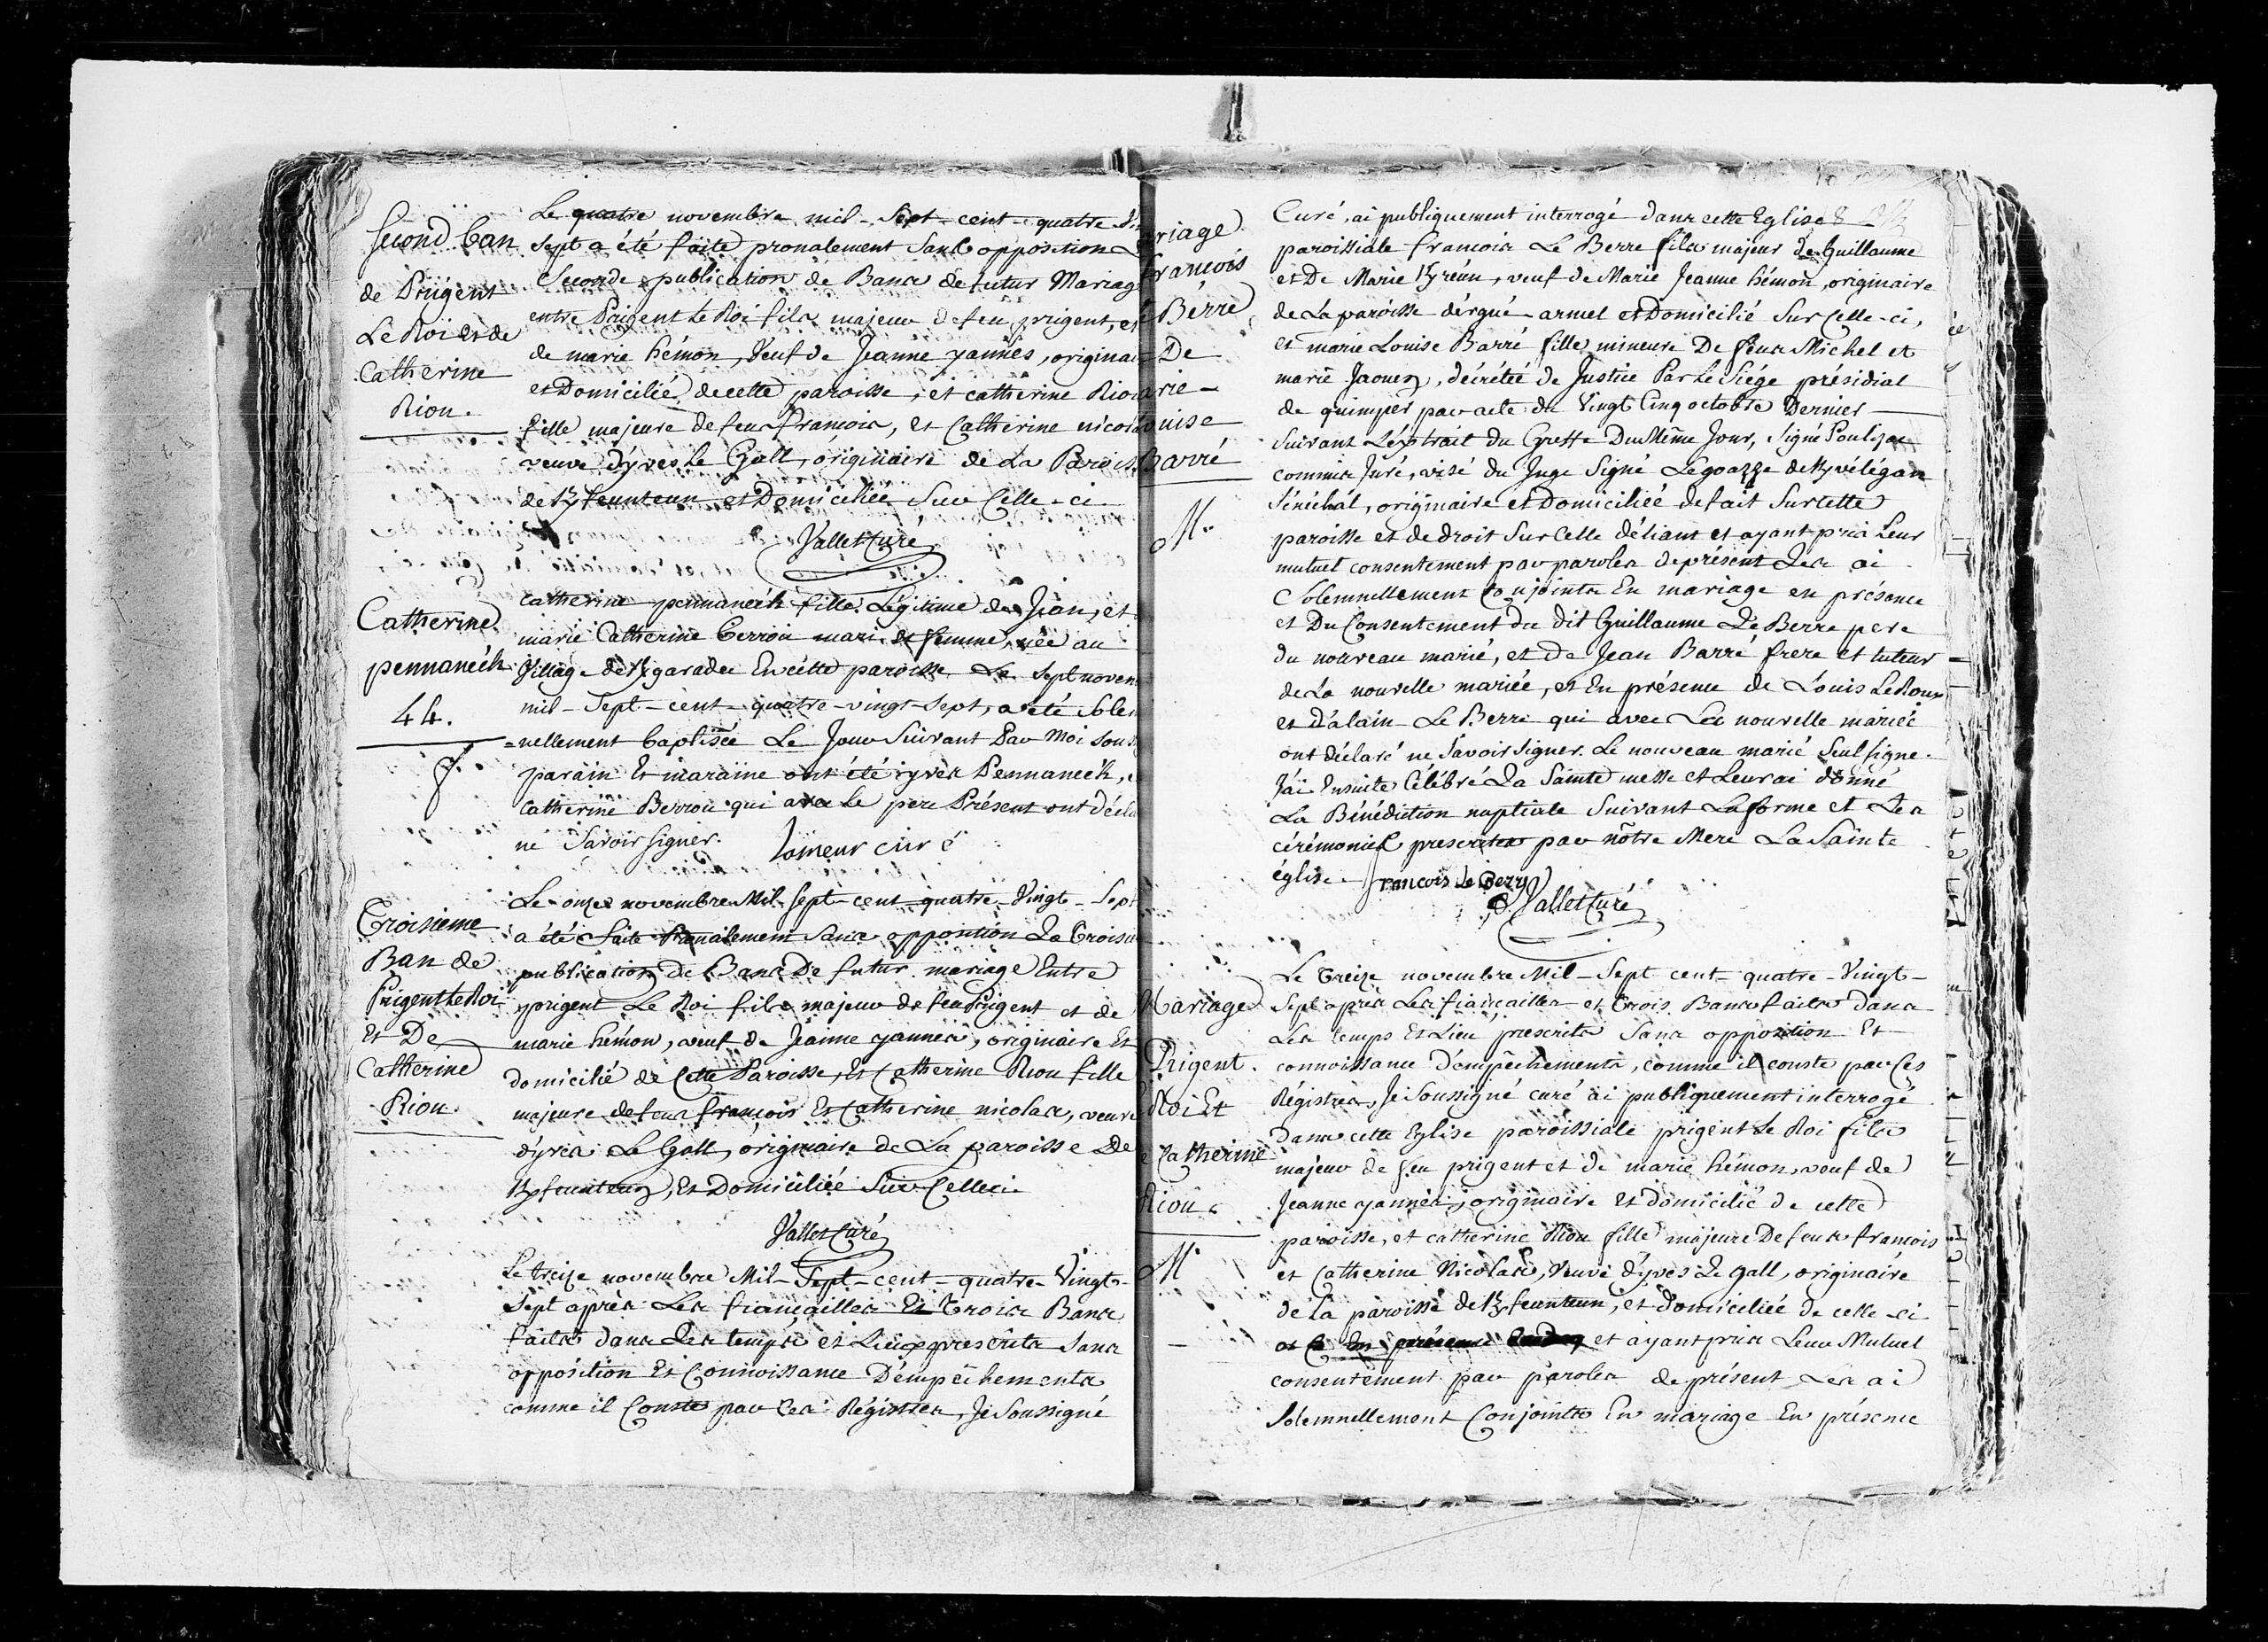 Second ban
de Prigent
Le Roi et de
Catherine
Riou.
Le quatre novembre mil - Sept - cent - quatre
Sept a été faite pronalement Sans opposition
Seconde publication de Bans de futur Mariag
entre Prigent Le Roi fils majeur de feu prigent, et
de marie hémon, Veuf de Jeanne yannès, originai
et Domicilié de cette paroisse, et catherine Riou
fille majeure de feus francois, et Catherine nicola
veuve d'yves Le Gall, originaire de La Parois
de Kfeunteun et Domiciliée Sur Celle - ci
Vallet Curé
Catherine
pennanéch
44.
Catherine pennanéch fille Légitime de Jean, et
marie Catherine Berrou mari et femme, née au
Village de Kgaradec En cette paroisse Le Sept noven
mil - Sept - cent - quatre - vingt - Sept, a été Solem
=nellement baptisée Le Jour Suivant Par Moi Sous
parain Et maraine ont été yves Pennanéch,
Catherine Berrou qui avec Le pere Présent ont Décla
né Savoir signer.
curé
Troisieme
Ban de
Prigent Le Roi
Et De
Catherine
Riou.
Le onze novembre Mil - Sept - cent - quatre - Vingt - Sept
a été faite Pronalement Sans opposition La Troisie
publication de Bans De futur mariage Entre
prigent Le Roi fils majeur de feu Prigent et de
marie hémon, veuf de Jeanne yannes, originaire Et
domicilié de Cette Paroisse, Et Catherine Riou fille
majeure de feus françois Et Catherine nicolas, veuve
d'yves Le Gall, originaire de La paroisse De
Kfeunteun, Et Domiciliée Sur Celle ci.
Vallet Curé
Le treize novembre Mil - Sept - cent - quatre - Vingt -
Sept après Les fiançailles Et Trois Bans
faits dans Les temps et Lieux prescrits Sans
opposition Et Connoissance D'empêchements
comme il Conste par Ces Régistres, Je Soussigné
riage
francois
Berre
De
arie -
ouise
Barré
M.
Curé, ai publiquement interrogé dans cette Eglise
paroissiale francois Le Berre fils majeur de Guillaume
et De Marie Kreun, veuf de Marie Jeanne hémon, originaire
de La paroisse d'ergué - armel et Domicilié Sur Celle - ci,
et marie Louise Barré fille mineure De feus Michel et
marie Jaouen, décrétée de Justice Par Le Siége présidial
de quimper par acte du Vingt Cinq octobre Dernier
Suivant L'extrait du Greffe Du Même Jour, Signé
commis Juré, visé du Juge Signé Legoazre de Kvélégan
Sénéchal, originaire et Domiciliée de fait Sur cette
paroisse et de droit Sur Celle d'éliant et ayant pris Leur
mutuel consentement par paroles de présent Les ai
Solemnellement Conjoints En mariage en présence
et Du Consentement du dit Guillaume Le Berre pere
du nouveau marié, et de Jean Barré frere et tuteur
de La nouvelle mariée, et En présence de Louis Le Roux
et d'alain Le Berre qui avec La nouvelle mariée
ont déclaré ne Savoir Signer. Le nouveau marié Seul signe.
J'ai Ensuite Célébré La Sainte messe et Leur ai donné
La Bénédiction nuptiale Suivant La forme et Les
cérémonies prescrites par nôtre Mere La Sainte
église. francois Le Berre
Vallet Curé
Mariage
Prigent
Roi Et
e Catherine
Riou.
M.
Le treize novembre Mil - Sept cent - quatre - Vingt -
Sept après Les fiançailles et trois Bans faits dans
Les temps Et Lieu prescrits Sans opposition Et
connoissance D'empêchements, comme il conste par Ces
Régistres, Je Soussigné curé ai publiquement interrogé
dans cette Eglise paroissiale prigent Le Roi fils
majeur de feu prigent et de marie hémon, veuf de
Jeanne yannes, originaire et domicilié de cette
paroisse, et catherine Riou fille majeure De feus francois
et Catherine Nicolas, Veuve d'yves Le gall, originaire
de la paroisse de Kfeunteun, et domiciliée de celle - ci
et ayant pris Leur Mutuel
consentement par paroles de présent Les ai
Solemnellement Conjoints En mariage En présence